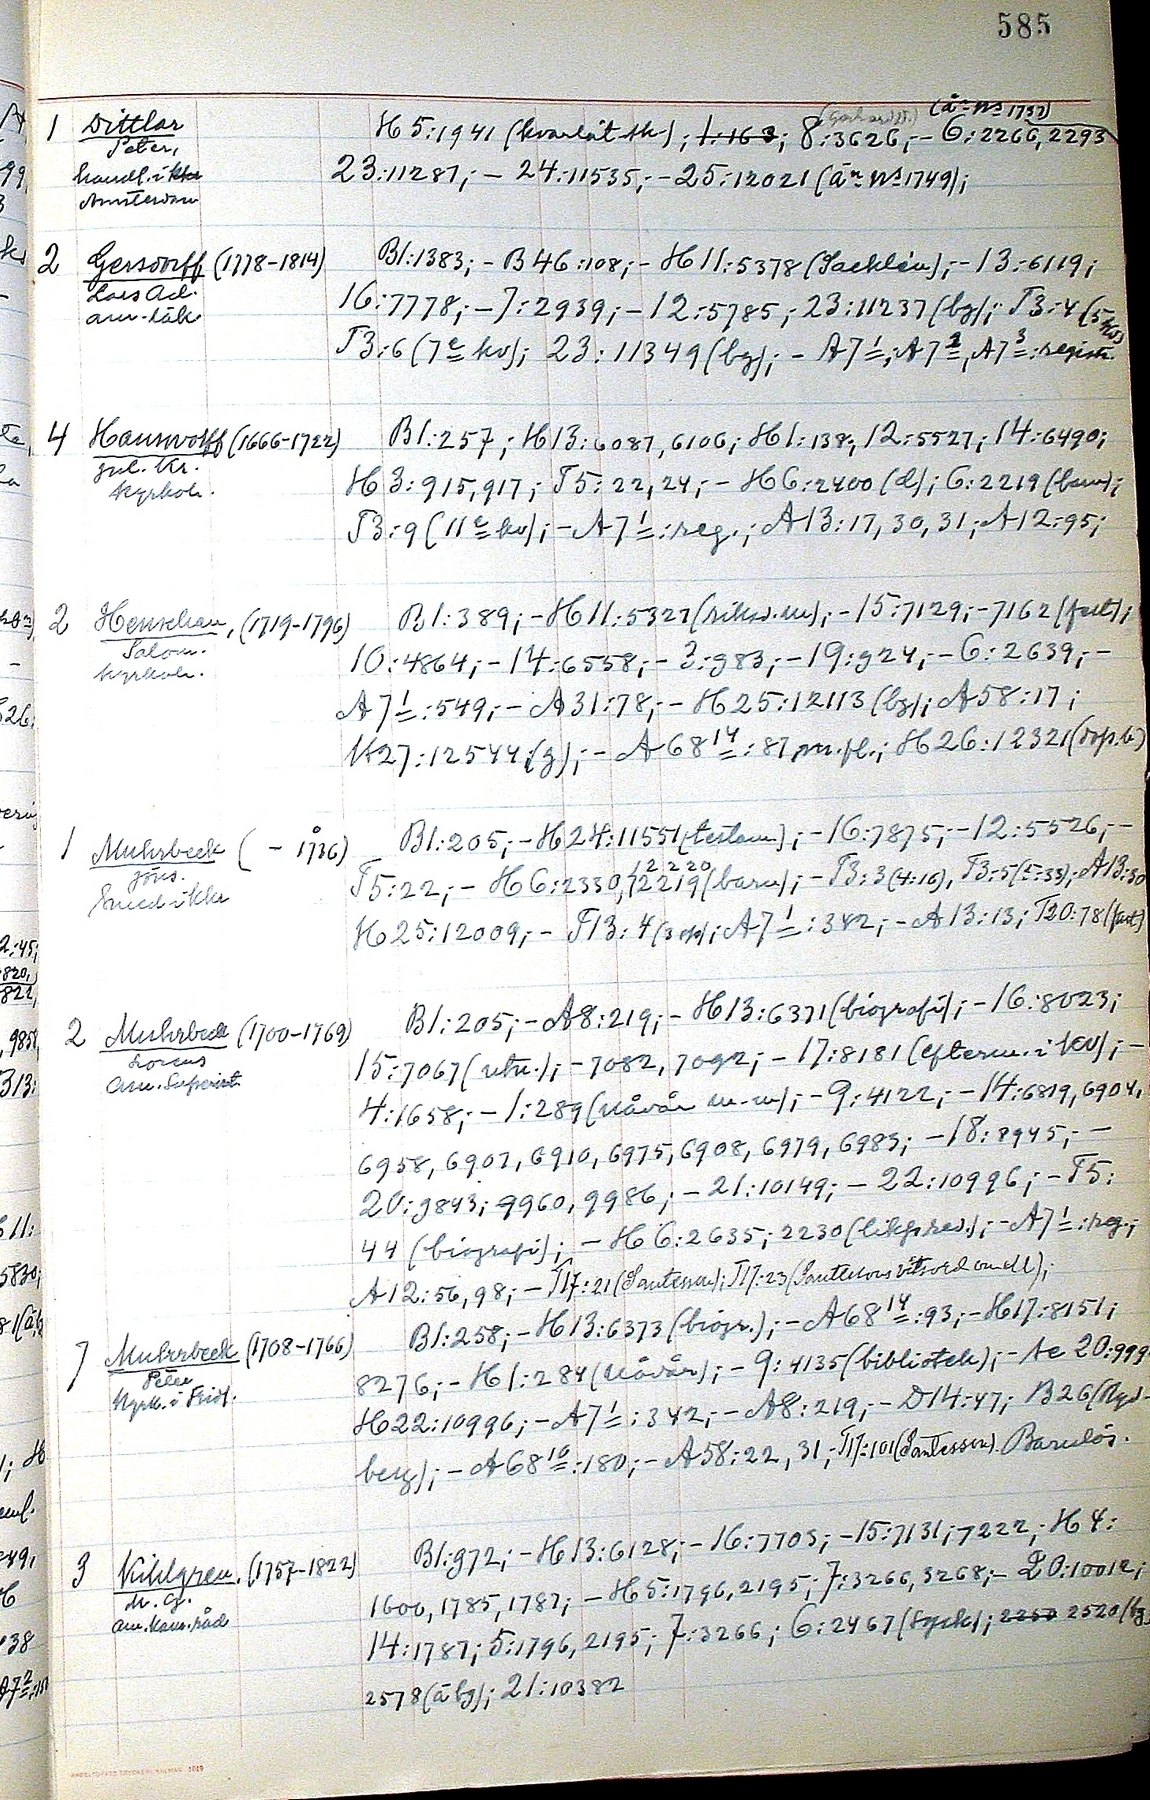 585
(år 1737)
1 Dittlar H 5:1941 (kvarlåt-sk); 1:163; 8:3626; - 6:2266, 2293
Peter,
handl. i 23:11287; - 24:11535; - 25:12021 (år 1749);
Amsterdam
2 Gersdorff (1778-1814) B1:1383; - B46:108; - H11:5378 (Sacklén); - 13:6119;
Lars Ad. 16:7778; - 7:2939; - 12:5785; 23:11237 (bg); T3:4 (5 kv)
am.-läk. T3:6 (7e kv); 23:11349 (bg); - A7 1, A7 2, A7 3: registr.
4 Hauswolff (1666-1722) B1:257; H13:6087, 6106; H1:138; 12:5527; 14:6490;
Joh. Kr. H3:915, 917; T5:22, 24; - H6:2400 (d); 6:2219 (barn);
kyrkoh. T3:9 (11e kv); - A7 1: reg.; A13:17, 30, 31; A12:95;
2 Henschen, (1719-1796) B1:389; - H11:5327 (riksd.m); - 15:7129; - 7162 (fast);
Salom. 10:4864; - 14:6558; - 3:983; - 19:924; - 6:2639; -
kyrkoh. A7 1:549; - A31:78; - H25:12113 (bg); A58:17;
H27:12544 (g); - A68 14:87 m.fl.; H26:12321 (dop.b)
1 Muhrbeck ( - år 1736) B1:205; - H24:11551 (testam); - 16:7875; - 12:5526; -
Jöns. T5:22; - H6:2330, 2219 (barn); - T3:3 (4:16), T3:5 (5:33); A13:30
12220
Smed i Kkr H25:12009; - T13:4; A7 1:342; - A13:13; T20:78 (fast)
2 Muhrbeck (1700-1769) B1:205; - A8:219; - H13:6371 (biografi); - 16:8023;
Lorens 15:7067 (utn.); - 7082, 7092; - 17:8181 (efterm. i KV); -
am. Superint. 4:1658; - 1:289 (nåvår m-m); - 9:4122; - 14:6819, 6904,
6958, 6907, 6910, 6975, 6908, 6979, 6983; - 18:8945; -
20:9843; 9960, 9986; - 21:10149; - 22:10996; - T5:
44 (biografi); - H6:2635; 2230 (likpred.); - A7 1: reg.;
A12:56, 98; - T17:21 (Santesson); T17:23 (Santessons vitsord om dl);
7 Muhrbeck (1708-1766) B1:258; - H13:6373 (biogr.); - A68 14:93; - H17:8151;
Peter 8276; - H1:284 (nåvår); - 9:4135 (bibliotek); - 20:999
Kyrk. i Frid. H22:10996; - A7 1:342; - A8:219; - D14:47; B26 (Ryd-
berg); - A68 10:180; - A58:22, 31; T17:101 (Santesson). Barnlös.
3 Kihlgren, (1757-1822) B1:972; - H13:6128; - 16:7703; - 15:7131; 7222; H4:
M. G. 1600, 1785, 1787; - H5:1796, 2195; 7:3266, 3268; - 20:10012;
am. kam. råd 14:1787; 5:1796, 2195; 7:3266; 6:2467 (tryck); 2257 2520 (bg)
2578 (å bg); 21:10382